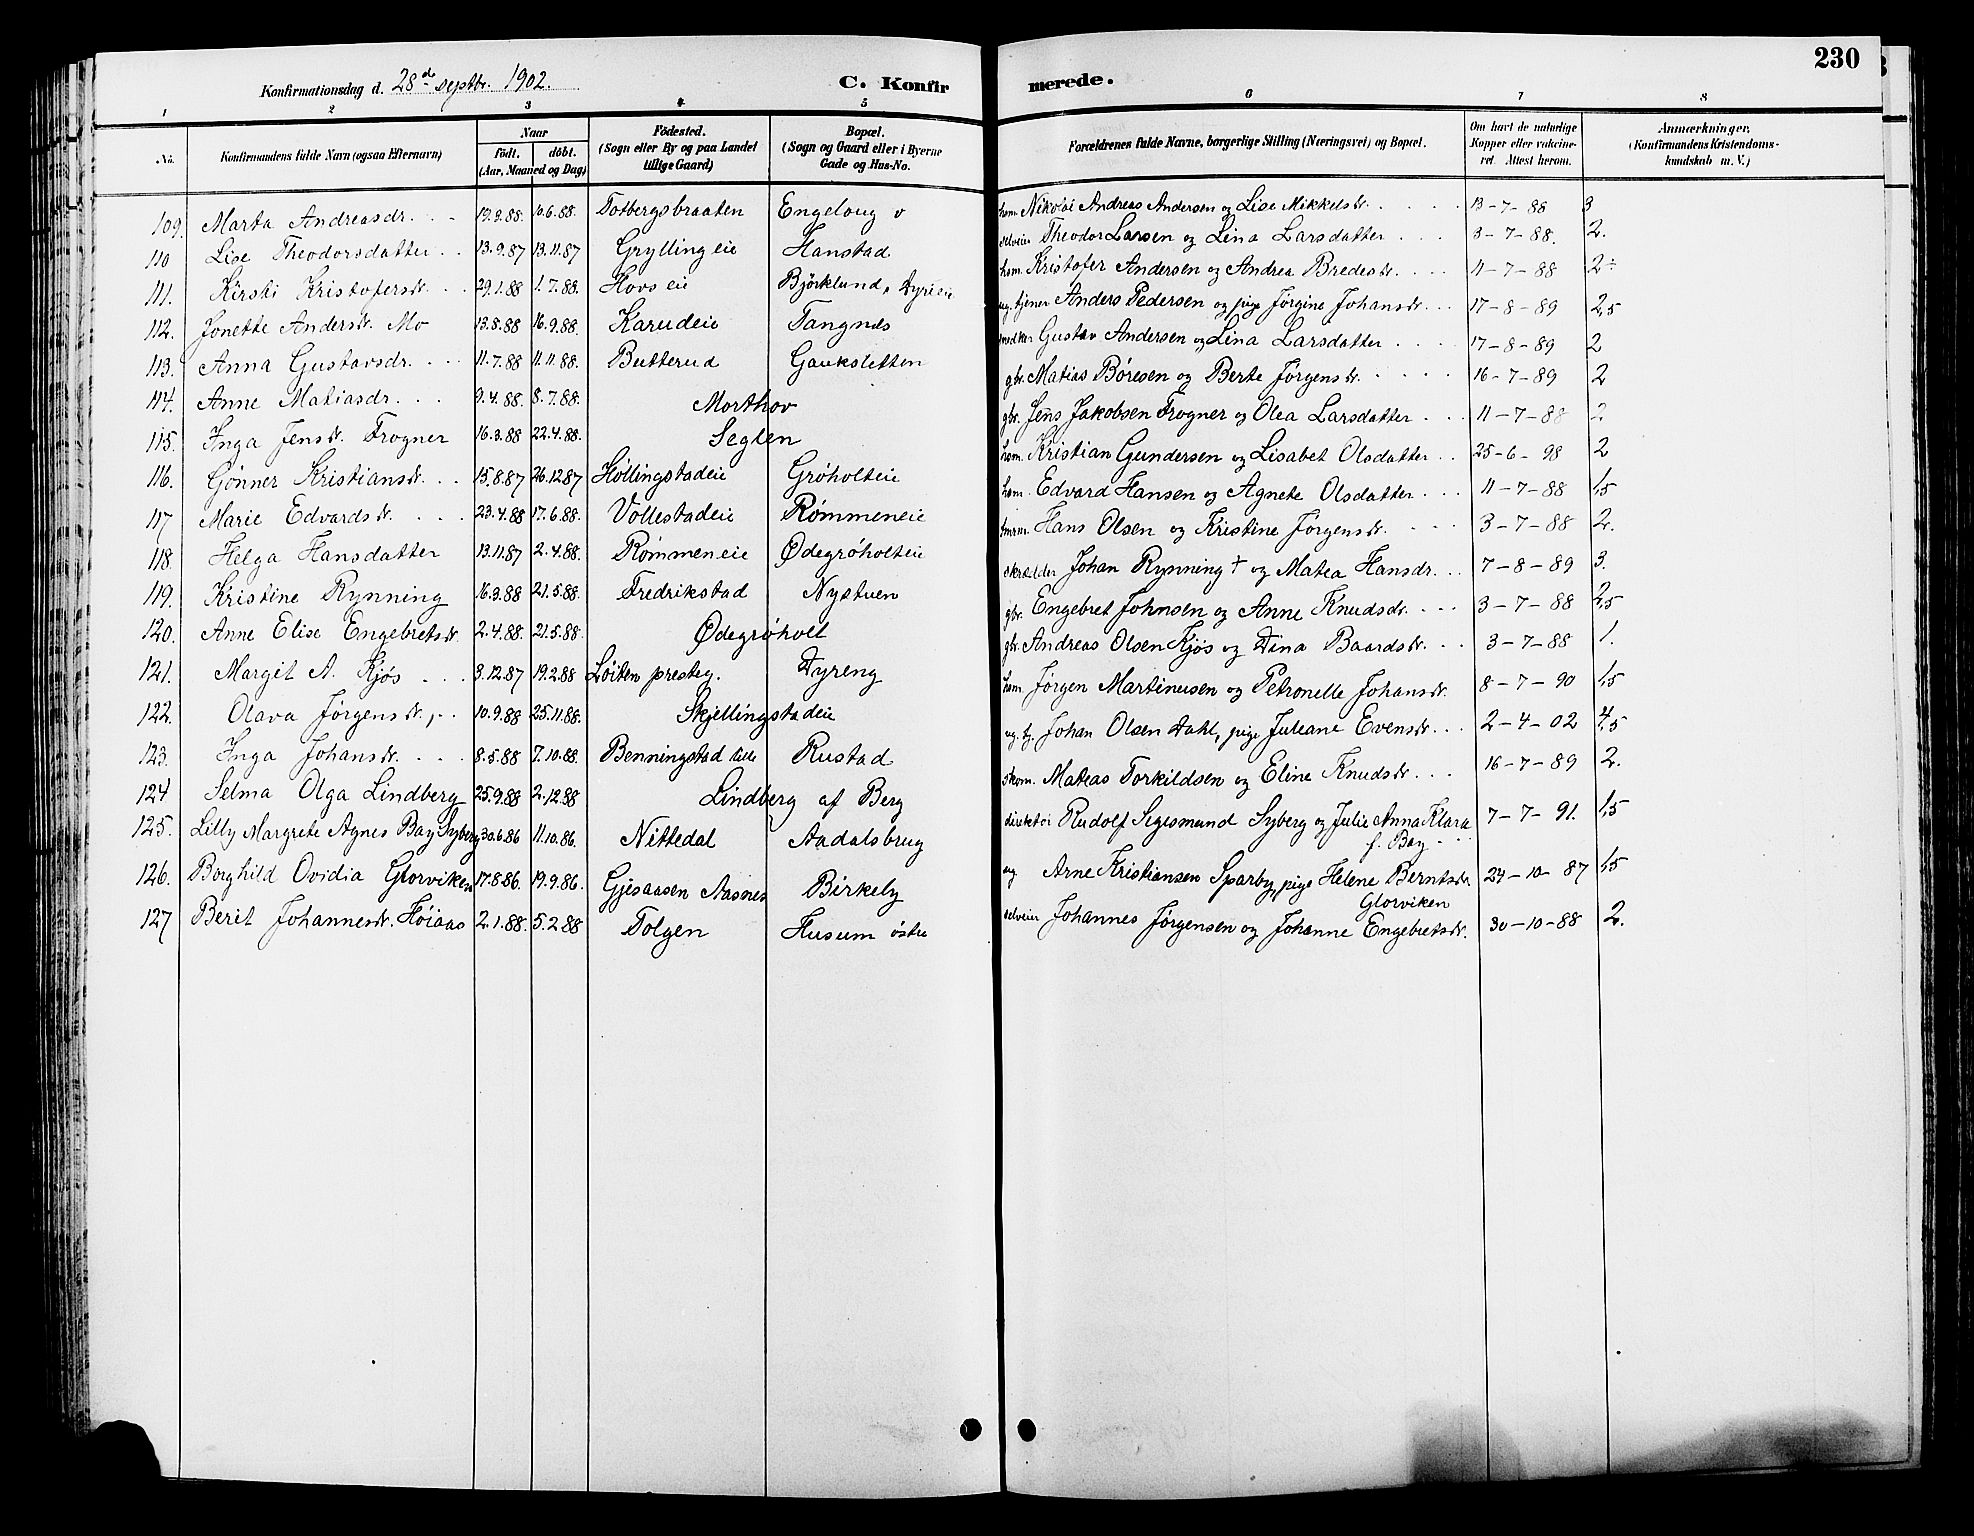 230
Konfirmationsdag d. 28de septbr. 1902. C. Konfirmerede.
1 2 3 4 5 6 7 8
No. Konfirmandens fulde Navn (ogsaa Efternavn) Naar født. døbt. (Aar, Maaned og Dag) Fødested. (Sogn eller By og paa Landet tillige Gaard) Bopæl. (Sogn og Gaard eller i Byerne Gade og Hus-No. Forældrenes fulde Navne, borgerlige Stilling (Næringsvei) og Bopæl. Om havt de naturlige Kopper eller vakcineret. Attest herom. Anmærkninger. (Konfirmandens Kristendomskundskab m. V.)
109. Marta Andreasdr. 19.3.88. 10.6.88. Totbergsbraaten Engeloug v hsm. Nikolai Andreas Andersen og Lise Mikkelsdr. 13-7-88 3
110 Lise Theodorsdatter 13.9.87 13.11.87 Gryllingeie Hanstad selveier Theodor Larsen og Lina Larsdatter 3-7-88. 2.
111. Kirsti Kristofersdr. 29.1.88 1.7.88. Hovseie Björklund, Dyreeie hsm. Kristofer Andersen og Andrea Bredesdr. 11-7-88 2÷
112. Jonette Andersdr. Mo 13.8.88 16.9.88. Karudeie Tangnes ug. tjener Anders Pedersen og pige Jørgine Johansdr. 17-8-89 2,5
113. Anna Gustavsdr. 11.7.88 11.11.88. Butterud Gaukstetten snedker Gustav Andersen og Lina Larsdatter 17-8-89 2
114. Anne Matiasdr. 9.4.88. 8.7.88. Morthov gbr. Matias Børesen og Berte Jørgensdr. 16-7-89 2
115. Inga Jensdr. Frogner 16.3.88 22.4.88. Seglen gbr. Jens Jakobsen Frogner og Olea Larsdatter 11-7-88 2
116. Gønner Kristiansdr. 15.8.87 26.12.87 Høllingstadeie Grøholteie hsm. Kristian Gundersen og Lisabet Olsdatter 25-6-98 2
117 Marie Edvardsdr. 23.4.88 17.6.88. Vollestadeie Rømmeneie hsm. Edvard Hansen og Agnete Olsdatter 11-7-88 1,5
118. Helga Hansdatter 13.11.87 2.4.88. Rømmeneie Ødegrøholteie tmrm. Hans Olsen og Kristine Jørgensdr. 3-7-88 2.
119. Kristine Rynning 16.3.88 21.5.88. Fredrikstad Nystuen skrædder Johan Rynning † og Matea Hansdr. 7-8-89 3.
120. Anne Elise Engebretsdr. 2.4.88. 21.5.88. Ødegrøholt gbr. Engebret Johnsen og Anne Knudsdr. 3-7-88 2,5
121. Margit A. Kjøs 3.12.87 19.2.88 Løiten presteg. Dyreng gbr. Andreas Olsen Kjøs og Dina Baardsdr. 3-7-88 1.
122. Olava Jørgensdr. 10.9.88 25.11.88. Skjellingstadeie hsm. Jørgen Martinusen og Petronelle Johansdr. 8-7-90 1,5
123. Inga Johansdr. 8.5.88 7.10.88. Benningstad lille Rustad ug. tj. Johan Olsen Dahl, pige Juleane Evensdr. 2-4-02 4,5
124 Selma Olga Lindberg 25.9.88 2.12.88 Lindberg af Berg skom. Mateas Torkildsen og Eline Knudsdr. 16-7-89 2.
125. Lilly Margrete Agnes Bay Syberg 30.6.86 11.10.86. Nittedal Aadalsbrug direktør Rudolf Segesmund Syberg og Julie Anna Klara f. Bay 7-7-91. 1,5
126. Borghild Ovidia Glorviken 17.8.86. 19.9.86. Gjesaasen Aasnes Birkeby ug Arne Kristiansen Sparby, pige Helene Berntsdr. Glorviken 24-10-87 1,5
127 Berit Johannesdr. Høiaas 2.1.88. 5.2.88 Tolgen Husum østre selveier Johannes Jørgensen og Johanne Engebretsdr. 30-10-88 2.